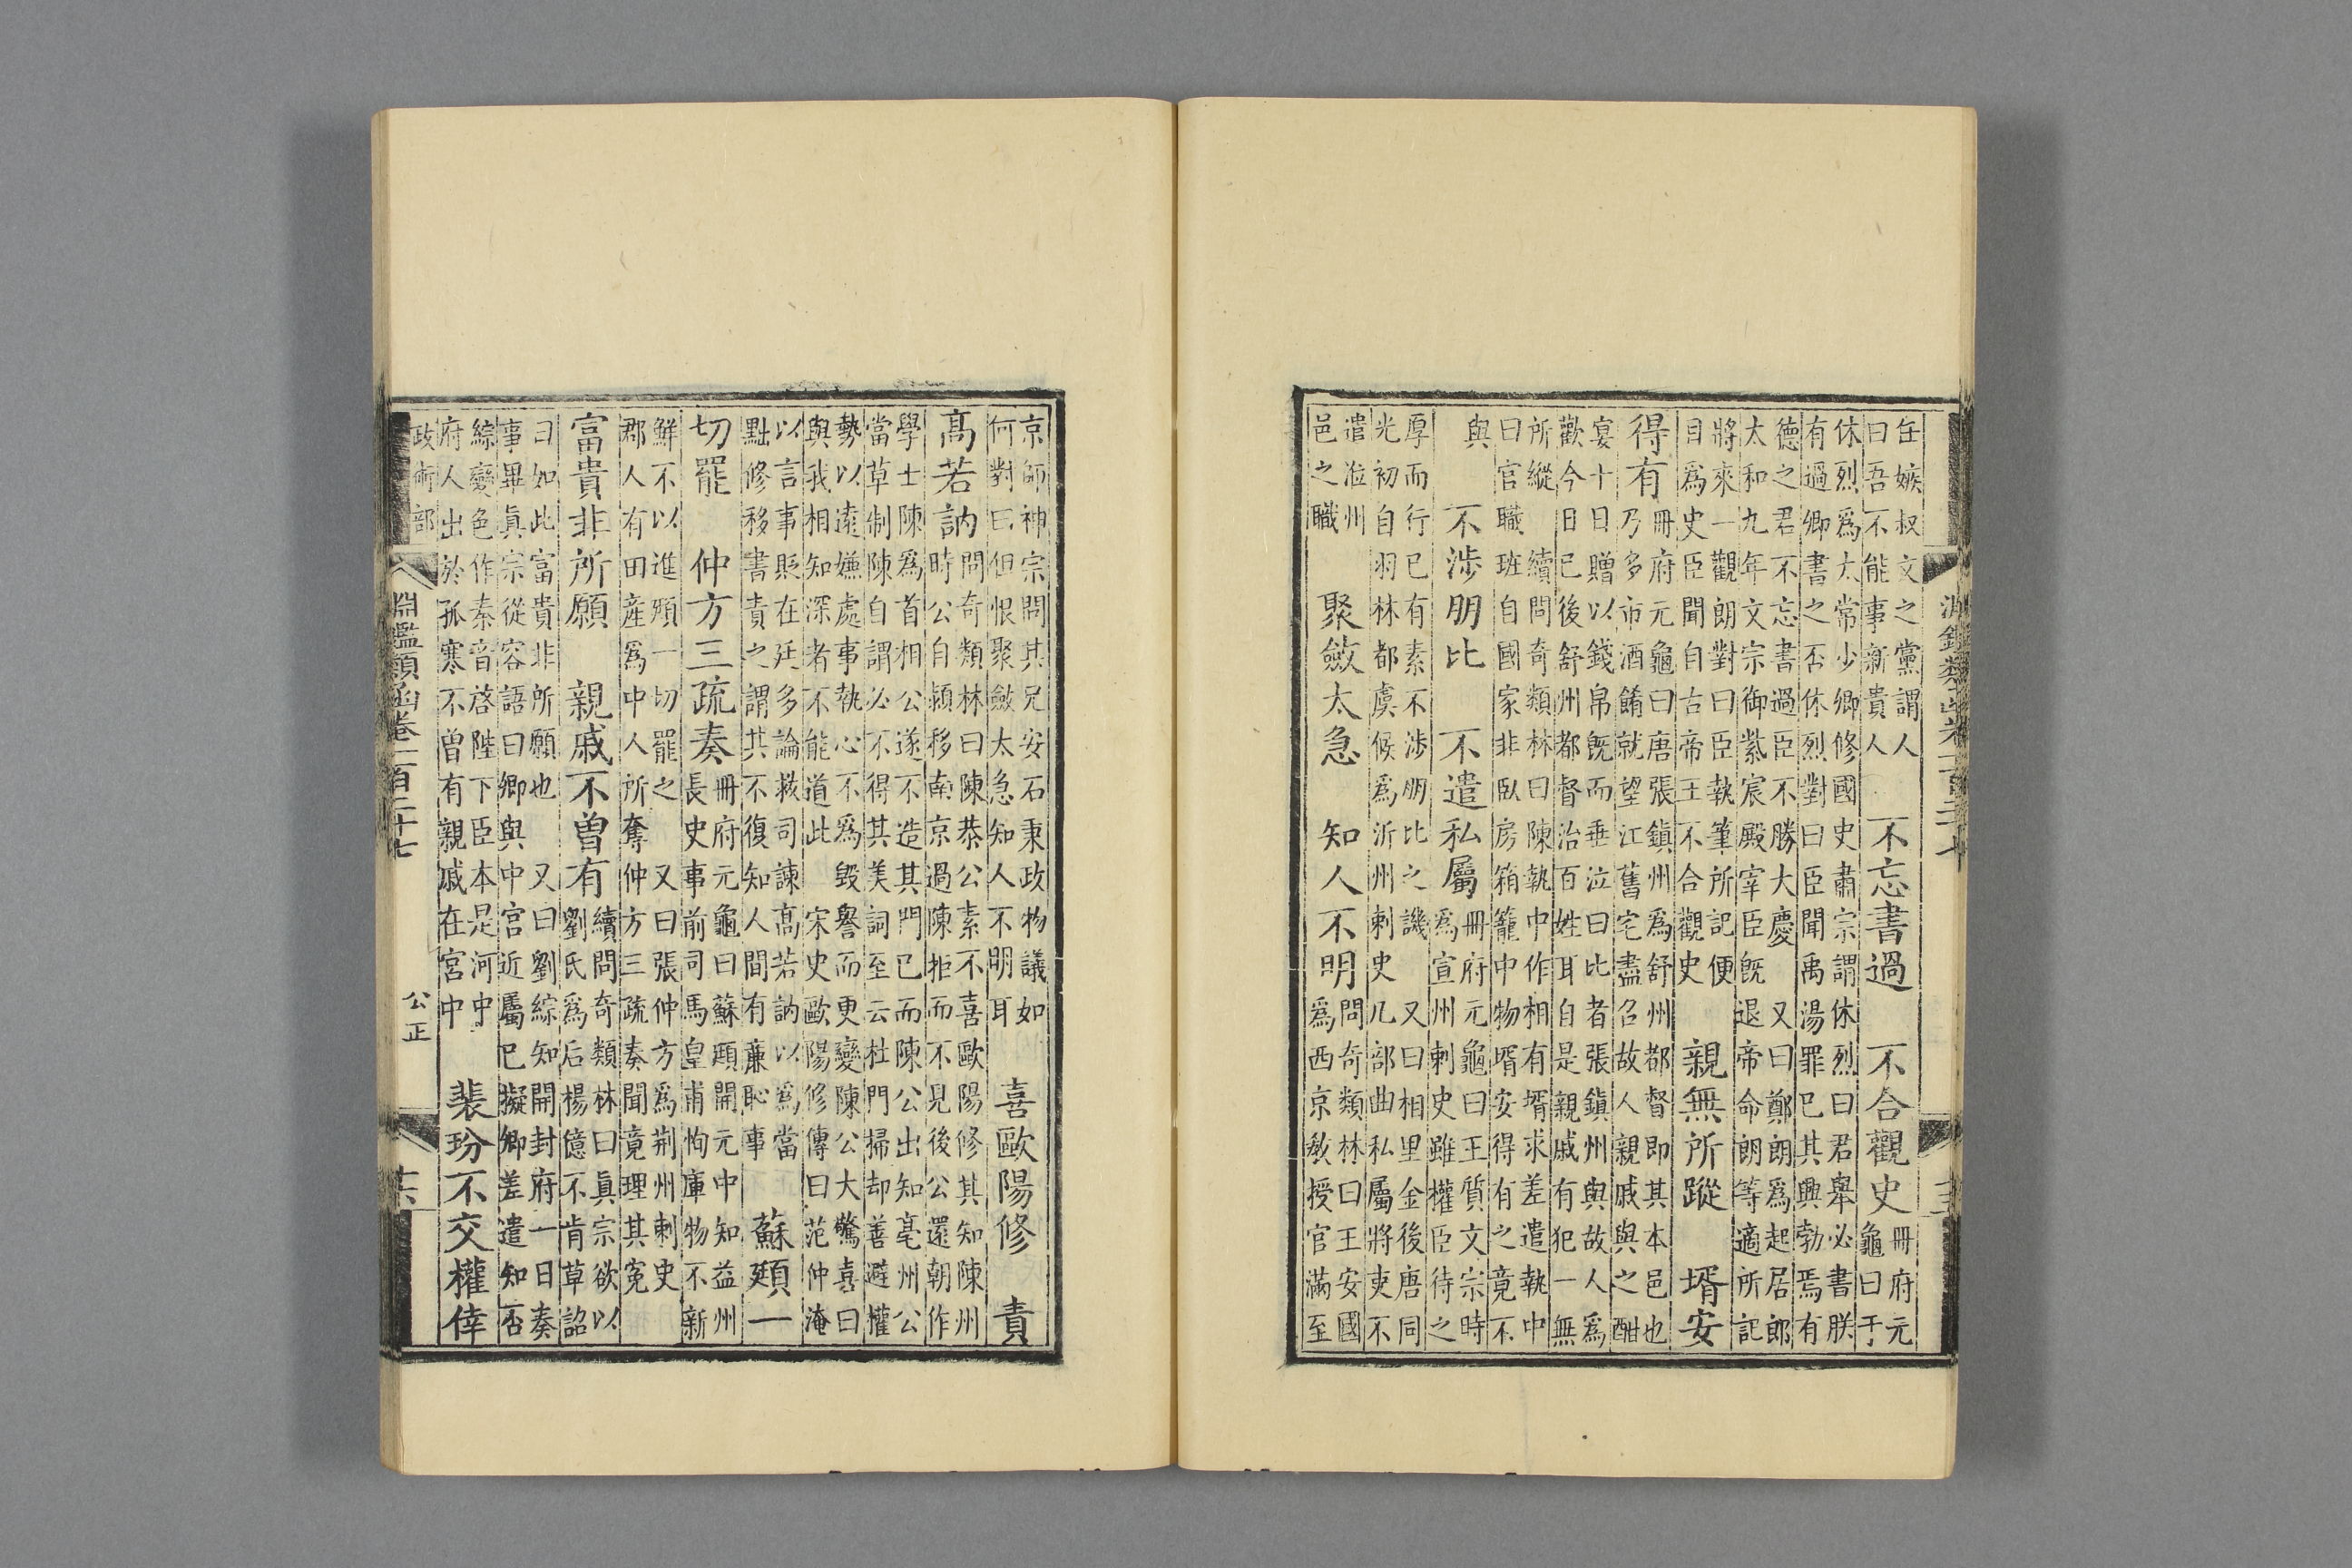 任嫉叔文之黨謂人
曰吾不能事新貴人
不忘書過　不合觀史
冊府元
龜曰于
休烈爲太常少卿修國史肅宗謂休烈曰君舉必書朕
有過卿書之否休烈對曰臣聞禹湯罪已其興勃焉有
德之君不忘書過臣不勝大慶　又曰鄭朗爲起居郎
太和九年文宗御紫宸殿宰臣既退帝命朗等適所記
將來一觀朗對曰臣執筆所記便
目爲史臣聞自古帝王不合觀史
親無所蹤　壻安
得有
冊府元龜曰唐張鎮州爲舒州都督即其本邑也
乃多市酒餚就望江舊宅盡召故人親戚與之酣
宴十日贈以錢帛既而垂泣曰比者張鎮州與故人爲
歡今日已後舒州都督治百姓耳自是親戚有犯一無
所縱　續問奇類林曰陳執中作相有壻求差遣執中
曰官職班自國家非臥房箱籠中物壻安得有之竟不
與
不涉朋比　不遣私屬
冊府元龜曰王質文宗時
爲宣州刺史雖權臣待之
厚而行已有素不涉朋比之譏　又曰相里金後唐同
光初自羽林都虞候爲沂州刺史凡部曲私屬將吏不
遣涖州
邑之職
聚斂太急　知人不明
問奇類林曰王安國
爲西京教授官滿至
京師神宗問其兄安石秉政物議如
何對曰但恨聚斂太急知人不明耳
喜歐陽修　責
高若訥
問奇類林曰陳恭公素不喜歐陽修其知陳州
時公自潁移南京過陳拒而不見後公還朝作
學士陳爲首相公遂不造其門已而陳公出知亳州公
當草制陳自謂必不得其美詞至云杜門掃却善避權
勢以遠嫌處事執心不爲毀譽而更變陳公大驚喜曰
與我相知深者不能道此　宋史歐陽修傳曰范仲淹
以言事貶在廷多論救司諫高若訥以爲當
黜修移書責之謂其不復知人間有廉恥事
蘇頲一
切罷　仲方三疏奏
冊府元龜曰蘇頲開元中知益州
長史事前司馬皇甫恂庫物不新
鮮不以進頲一切罷之　又曰張仲方爲荆州刺史
郡人有田産爲中人所奪仲方三疏奏聞竟理其寃
富貴非所願　親戚不曾有
續問奇類林曰眞宗欲以
劉氏爲后楊億不肯草詔
曰如此富貴非所願也　又曰劉綜知開封府一日奏
事畢眞宗從容語曰卿與中宮近屬已擬卿差遣知否
綜變色作秦音啓陛下臣本是河中
府人出於孤寒不曾有親戚在宮中
裴玢不交權倖
政術部　淵鑑類函卷一百二十七　公正　十六